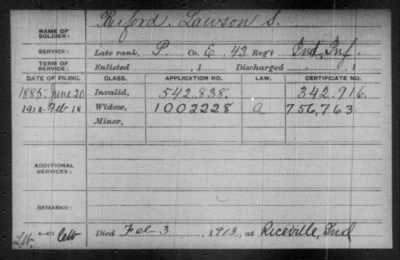 NAME OF SOLDIER: Ruford, Lawson S.
SERVICE: Late rank, P. Co. E, 43 Reg't Ind. Inf.
TERM OF SERVICE: Enlisted , 1 Discharged , 1
DATE OF FILING. CLASS. APPLICATION NO. LAW. CERTIFICATE NO.
1885 June 20 Invalid, 542.838. 342.916.
1913 Feb 18 Widow, 1002228 a 756,763
Minor,
ADDITIONAL SERVICES:
REMARKS:
Died Feb 3, 1913, at Riceville, Ind